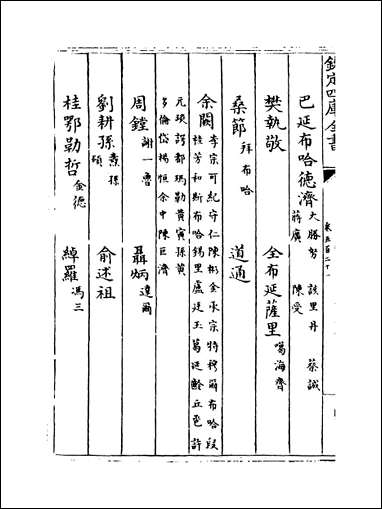 欽定四庫全書
巴延布哈德濟 大勝努 談里丹 蔡誠 蔣廣 陳受
樊執敬 全布延薩里 噶海魯
桑節 拜布哈 道通
余闕 李宗可 紀守仁 陳彬 金承宗 特穆爾布哈 段桂芳 和斯布哈 錫里 盧廷玉 葛延齡 丘卺 許元琰 諤都瑪勒 黄寅孫 黄多倫岱 楊恒 余中 陳巨濟
周鏜 謝一魯 聶炳 達爾
劉耕孫 燾孫 碩 俞述祖
桂鄂勒哲 金德 綽羅 馮三